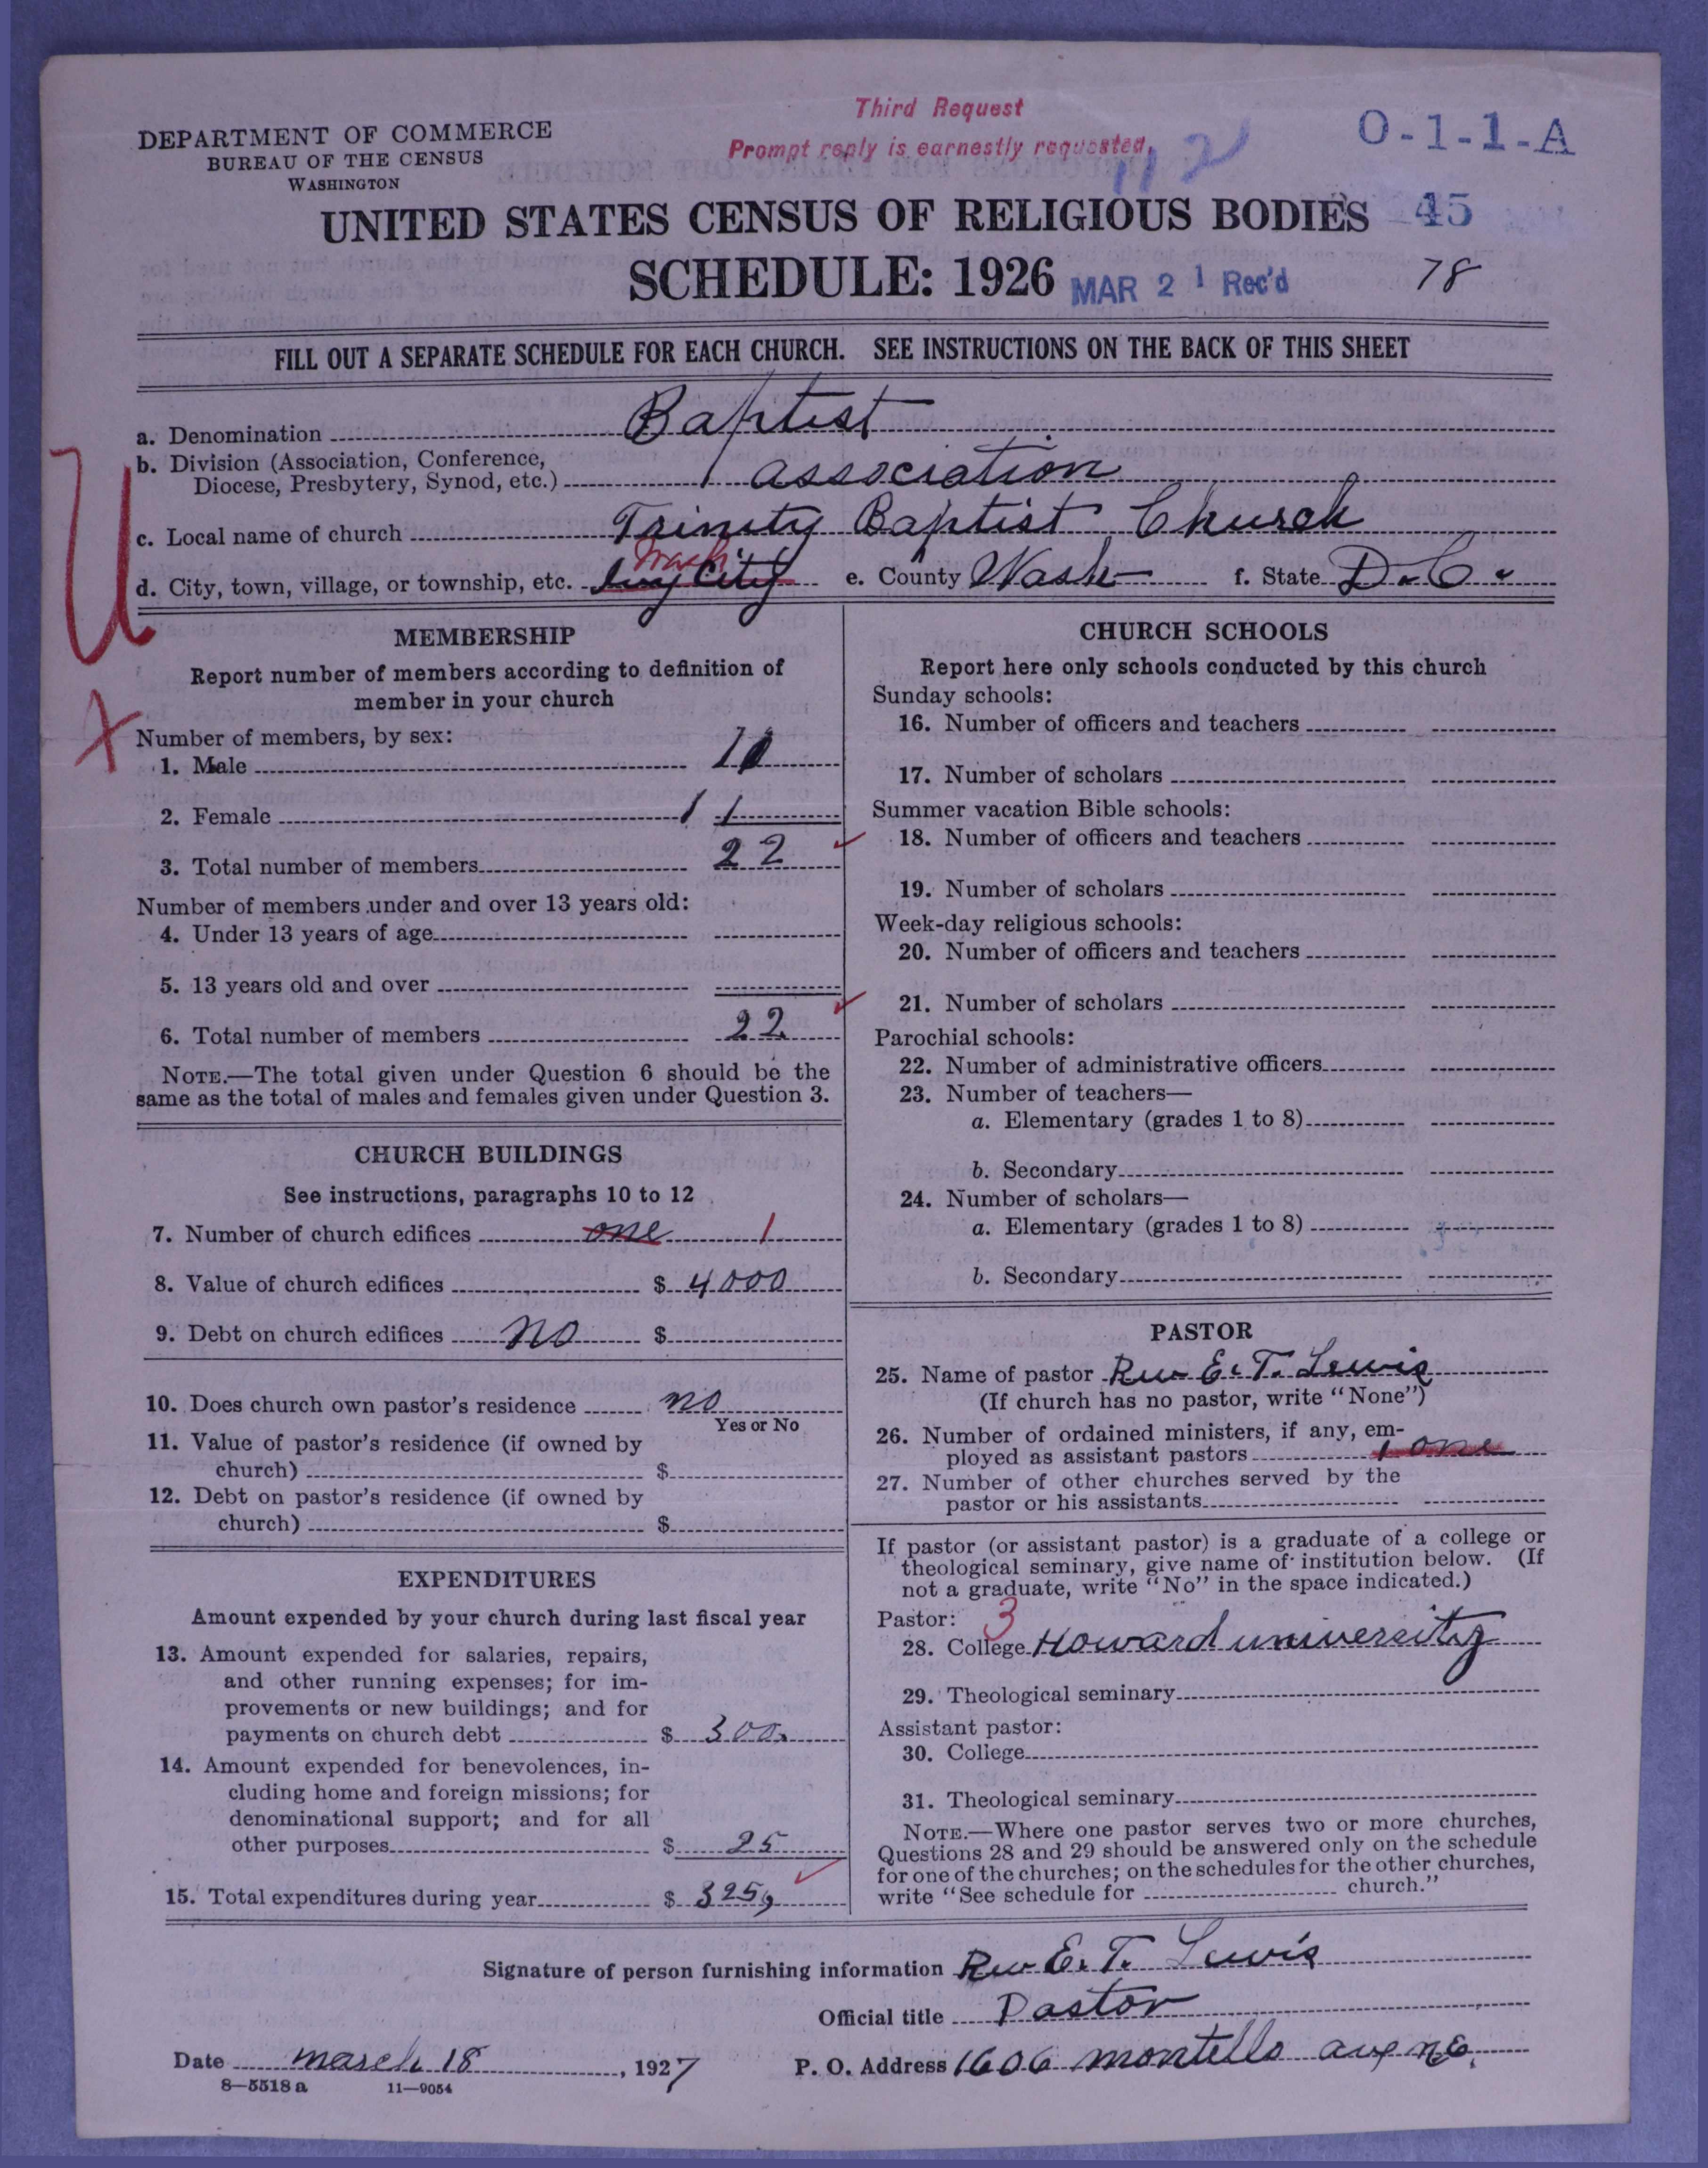 Third Request
Prompt reply is earnestly requested.
112
O-1-1-A
DEPARTMENT OF COMMERCE
BUREAU OF THE CENSUS
WASHINGTON
UNITED STATES CENSUS OF RELIGIOUS BODIES
45
SCHEDULE: 1926
MAR 21 Rec'd
78
FILL OUT A SEPARATE SCHEDULE FOR EACH CHURCH. SEE INSTRUCTIONS ON THE BACK OF THIS SHEET
a. Denomination Baptist
b. Division (Association, Conference,
Diocese, Presbytery, Synod, etc.) association
c. Local name of church Trinity Baptist Church
Wash.
d. City, town, village, or township, etc. City e. County Wash f. State D.C.
MEMBERSHIP
Report number of members according to definition of
member in your church
Number of members, by sex:
1. Male
2. Female 11
3. Total number of members 22
Number of members under and over 13 years old:
4. Under 13 years of age
5. 13 years old and over
6. Total number of members 22
NOTE.—The total given under Question 6 should be the
same as the total of males and females given under Question 3.
CHURCH BUILDINGS
See instructions, paragraphs 10 to 12
7. Number of church edifices one 1
8. Value of church edifices $ 4000
9. Debt on church edifices no $
10. Does church own pastor's residence no
Yes or No
11. Value of pastor's residence (if owned by
church) $
12. Debt on pastor's residence (if owned by
church) $
EXPENDITURES
Amount expended by your church during last fiscal year
13. Amount expended for salaries, repairs,
and other running expenses; for im-
provements or new buildings; and for
payments on church debt $ 300.
14. Amount expended for benevolences, in-
cluding home and foreign missions; for
denominational support; and for all
other purposes $ 25
15. Total expenditures during year $ 325,
CHURCH SCHOOLS
Report here only schools conducted by this church
Sunday schools:
16. Number of officers and teachers
17. Number of scholars
Summer vacation Bible schools:
18. Number of officers and teachers
19. Number of scholars
Week-day religious schools:
20. Number of officers and teachers
21. Number of scholars
Parochial schools:
22. Number of administrative officers
23. Number of teachers—
a. Elementary (grades 1 to 8)
b. Secondary
24. Number of scholars—
a. Elementary (grades 1 to 8)
b. Secondary
PASTOR
25. Name of pastor Rev E. T. Lewis
(If church has no pastor, write "None")
26. Number of ordained ministers, if any, em-
ployed as assistant pastors 1 one
27. Number of other churches served by the
pastor or his assistants
If pastor (or assistant pastor) is a graduate of a college or
theological seminary, give name of institution below. (If
not a graduate, write "No" in the space indicated.)
Pastor: 3
28. College Howard university
29. Theological seminary
Assistant pastor:
30. College
31. Theological seminary
NOTE.—Where one pastor serves two or more churches,
Questions 28 and 29 should be answered only on the schedule
for one of the churches; on the schedules for the other churches,
write "See schedule for church."
Signature of person furnishing information Rev E. T. Lewis
Official title Pastor
Date march 18, 1927 P. O. Address 1606 montello ave n.E.
8—5518 a 11—9054